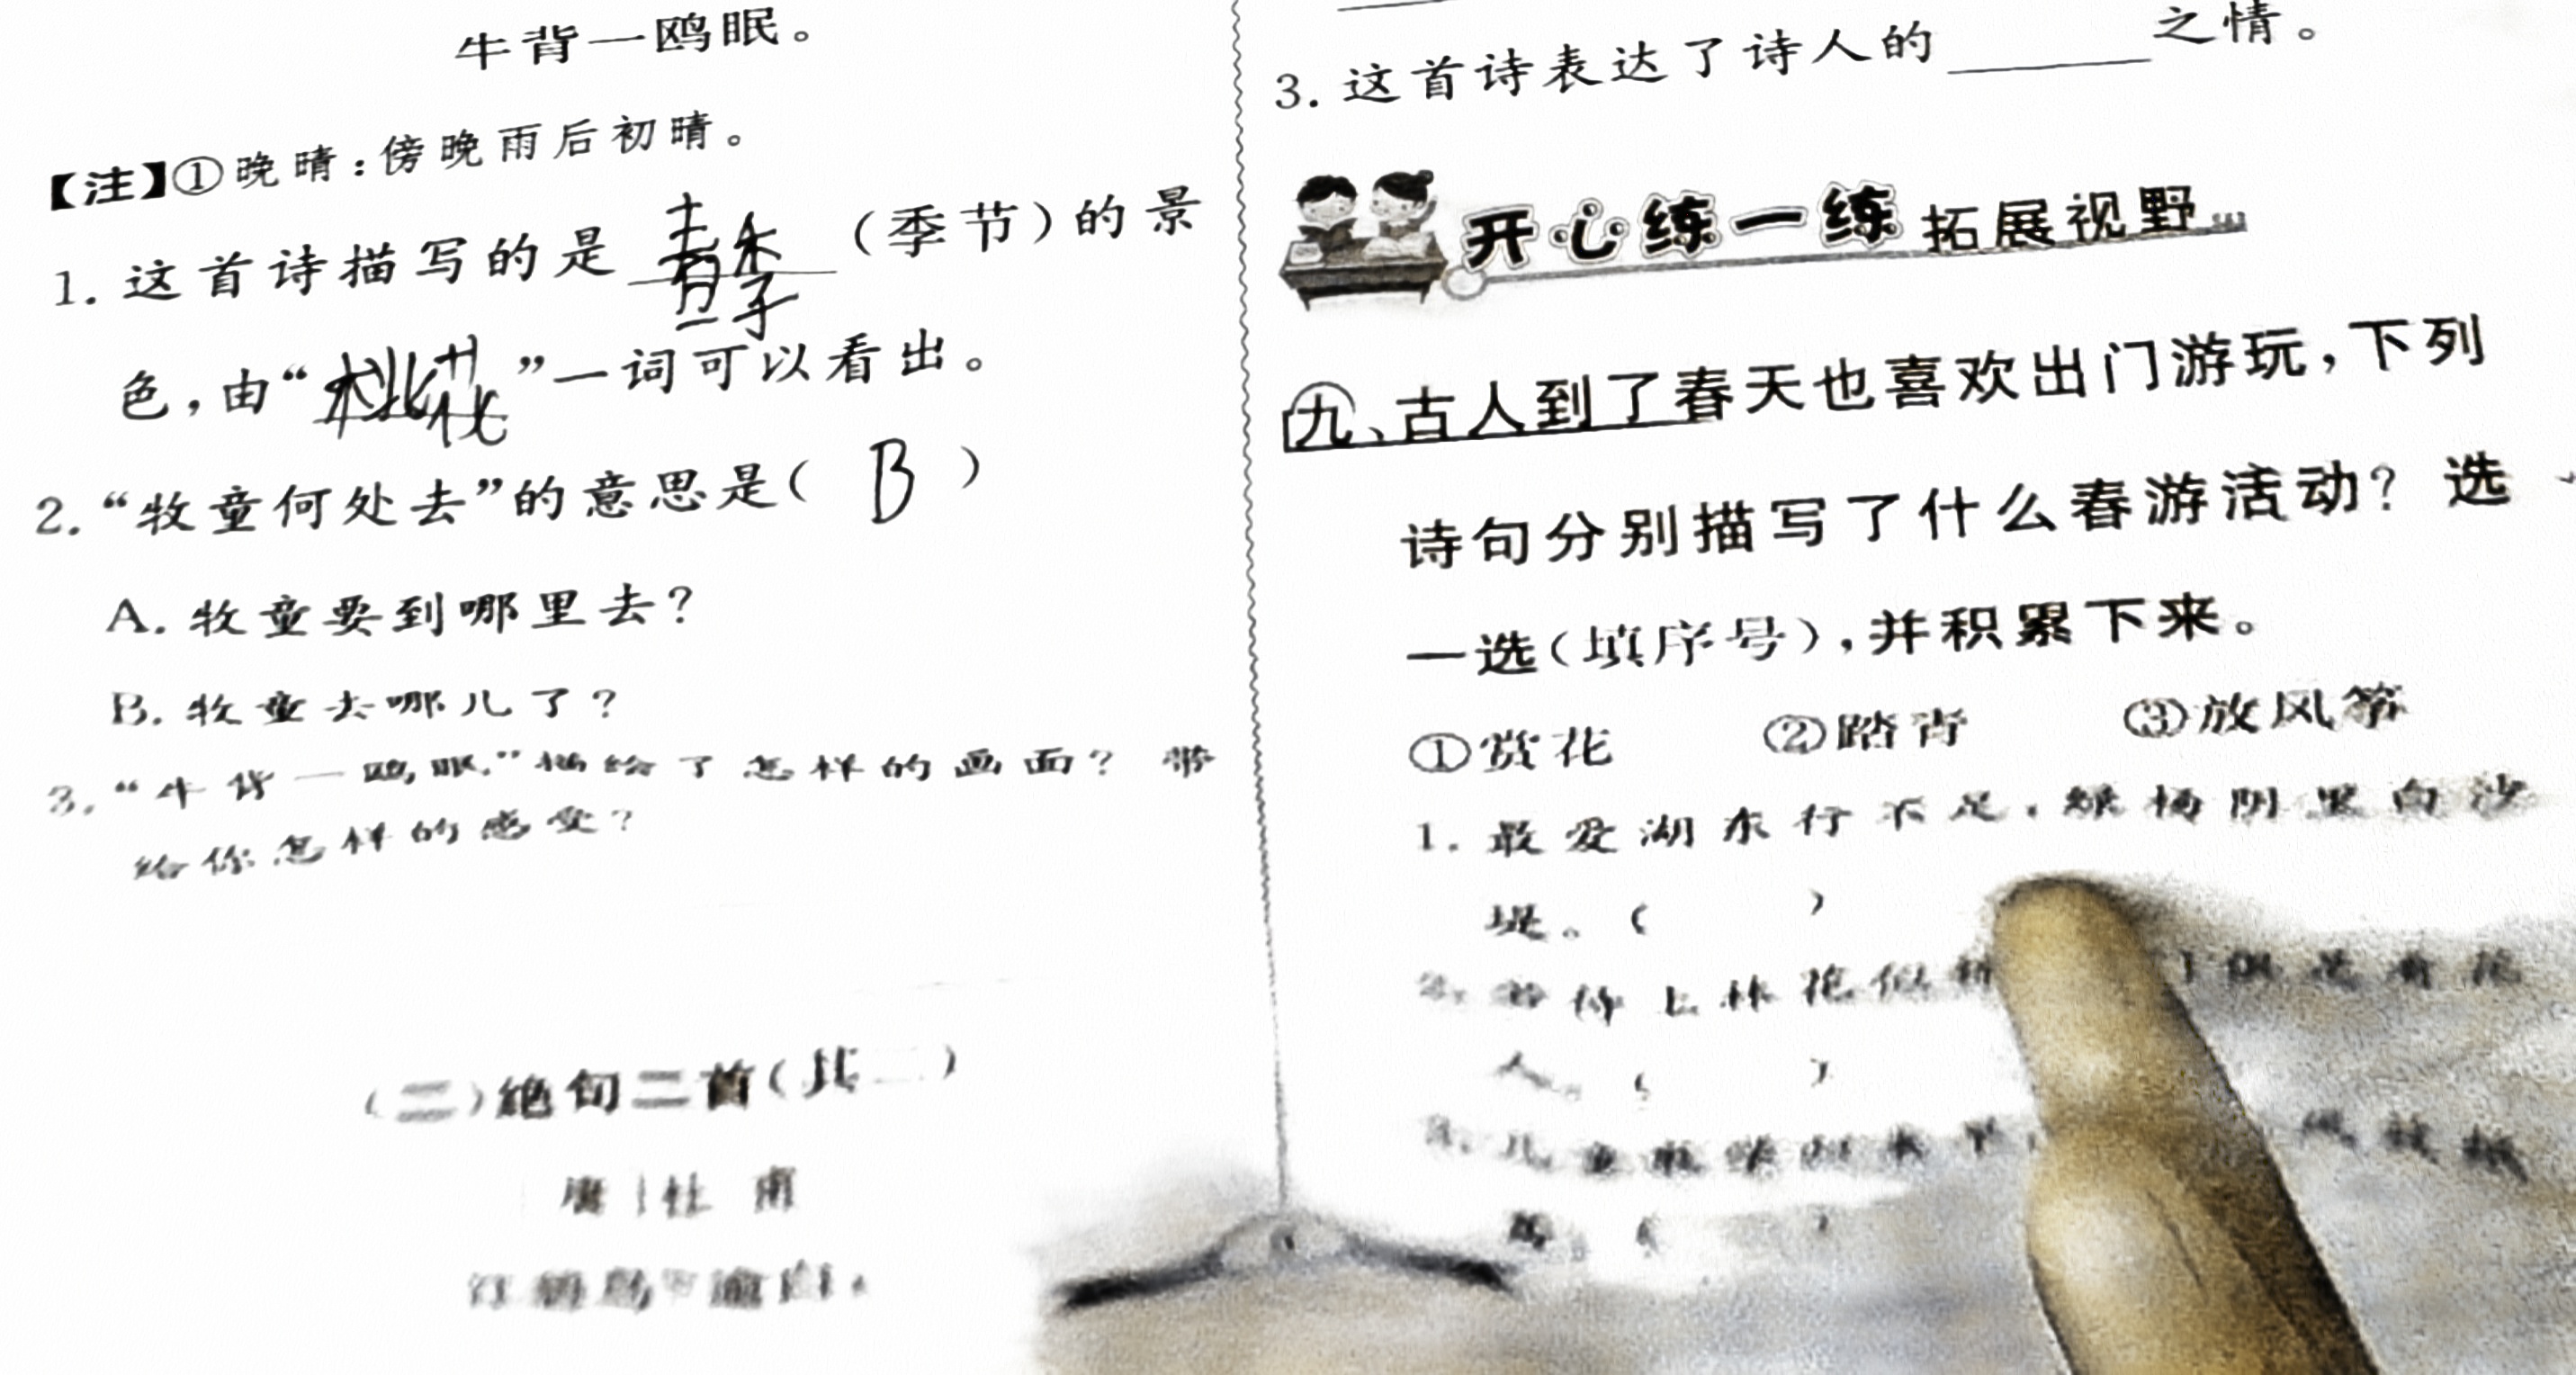 牛背一鸥眠。
【注】①晚晴：傍晚雨后初晴。
1. 这首诗描写的是 春季（季节）的景
色，由“桃花”一词可以看出。
2. “牧童何处去”的意思是（ B ）
A. 牧童要到哪里去？
B. 牧童去哪儿了？
3. “牛背一鸥眠”描绘了怎样的画面？带
给你怎样的感受？
（二）绝句二首（其二）
唐 杜 甫
江碧鸟逾白，
3. 这首诗表达了诗人的______之情。
开心练一练 拓展视野
九、古人到了春天也喜欢出门游玩，下列
诗句分别描写了什么春游活动？选
一选（填序号），并积累下来。
①赏花 ②踏青 ③放风筝
1. 最爱湖东行不足，绿杨阴里白沙
堤。（ ）
2. 若待上林花似锦 俱是看花
人。（ ）
3. 儿童散学归来早 风放纸
鸢。（ ）